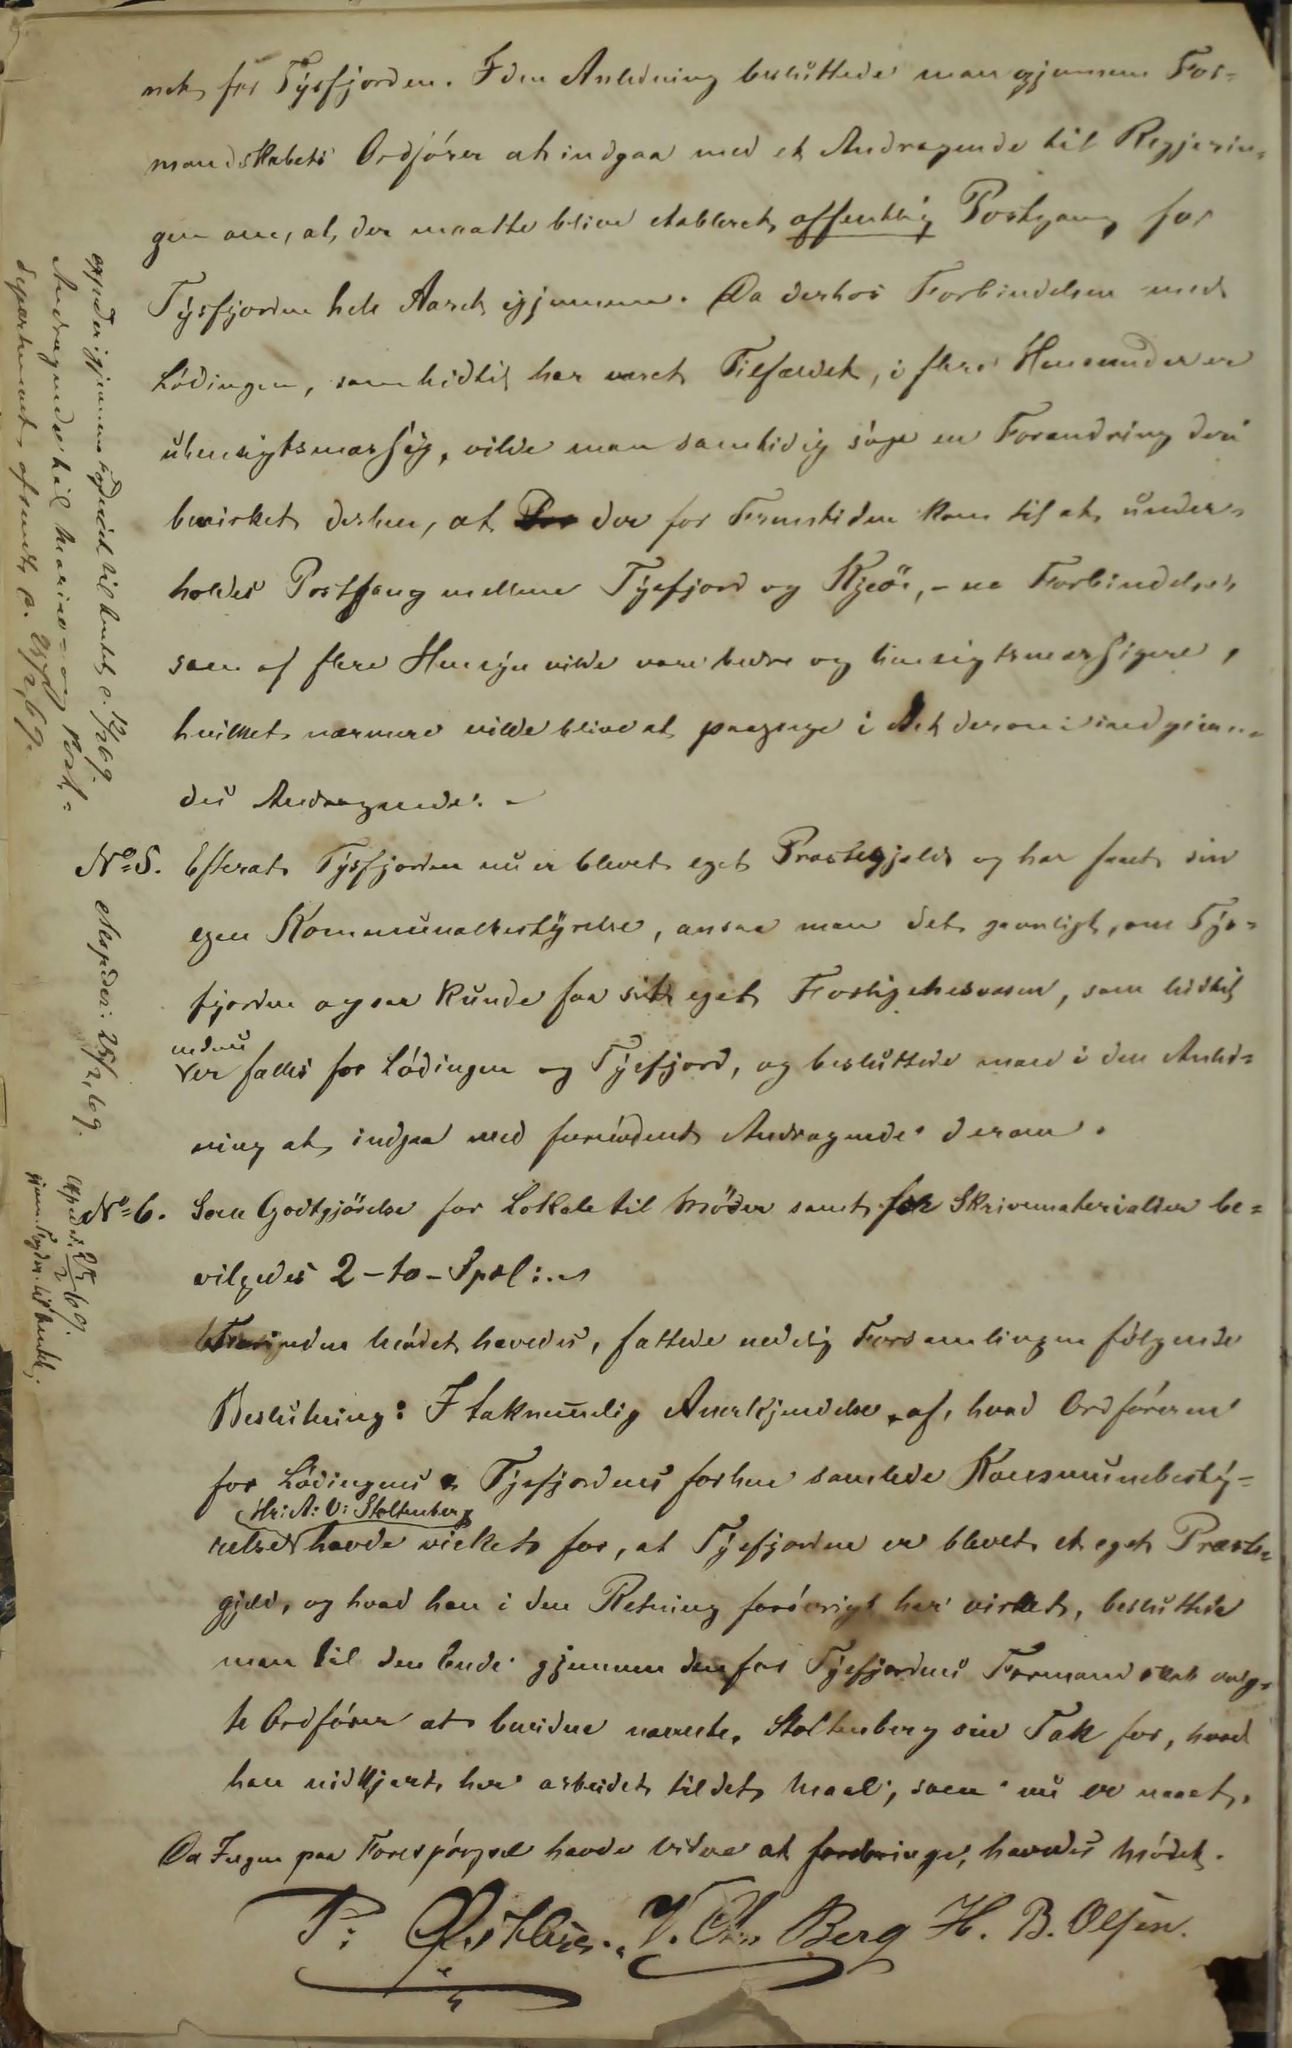 net for Tysfjorden. I den Anledning besluttede man gjennem For-
mandskabets Ordfører at indgaa med et Andragende til Regjerin-
gen om, at der maatte blive etableret offentlig Postgang for
Tysfjorden hele Aaret igjennem. Da derhos Forbindelsen med
Lødingen, som hidtil har været Tilfældet, i flere Henseender er
uhensigtsmæssig, vilde man samtidig søge en Forandring deri
bevirket derhen, at der for Fremtiden kom til at under-
holdes Postgang mellem Tysfjord og Kjeøe, - en Forbindelse,
som af flere Hensyn vilde være bedre og hensigtsmæssigere,
hvilket nærmere vilde blive at paapege i det derom indgiven-
des Andragende. -
No 5. Efterat Tysfjorden nu er blevet eget Præstegjeld og har faaet sin
egen Kommunalbestyrelse, ansaa man det gavnligt, om Tys-
fjorden ogsaa kunde faa sit eget Forligelsesvæsen, som hidtil
endnu
er fælles for Lødingen og Tysfjord, og besluttede man i den Anled-
ning at indgaa med fornødent Andragende derom.
No 6. Som Godtgjørelse for Lokale til Møder samt for Skrivematerialier be-
vilgedes 2 - to - Spdl:
Forinden Mødet hævedes, fattede Forsamlingen følgende
Beslutning: I taknemlig Anerkjendelse af, hvad Ordføreren
for Lødingens & Tysfjordens forhen samlede Kommunebesty-
Hr: A: V: Stoltenberg
relse havde virket for, at Tysfjorden er blevet et eget Præste-
gjeld, og hvad han i den Retning forøvrigt har virket, besluttede
man til den Ende gjennem den for Tysfjordens Formandskab valg-
te Ordfører at bevidne nævnte Stoltenberg sin Tak for, hvad
han nidkjert har arbeidet til det Maal, som nu er naaet.
Da Ingen paa Forespørgsel havde videre at frembringe, hævedes Mødet.
P: V. Chr. Berg H. B. Olsen.
expeder: gjennem Fogderiet til Amtet
Andragende til Marine- og Post-
departementet afsendt d. 25/2 69.
Exped: 25/2, 69.
Exped. 25/2 69.
gjenn. Fogden til Amtet.